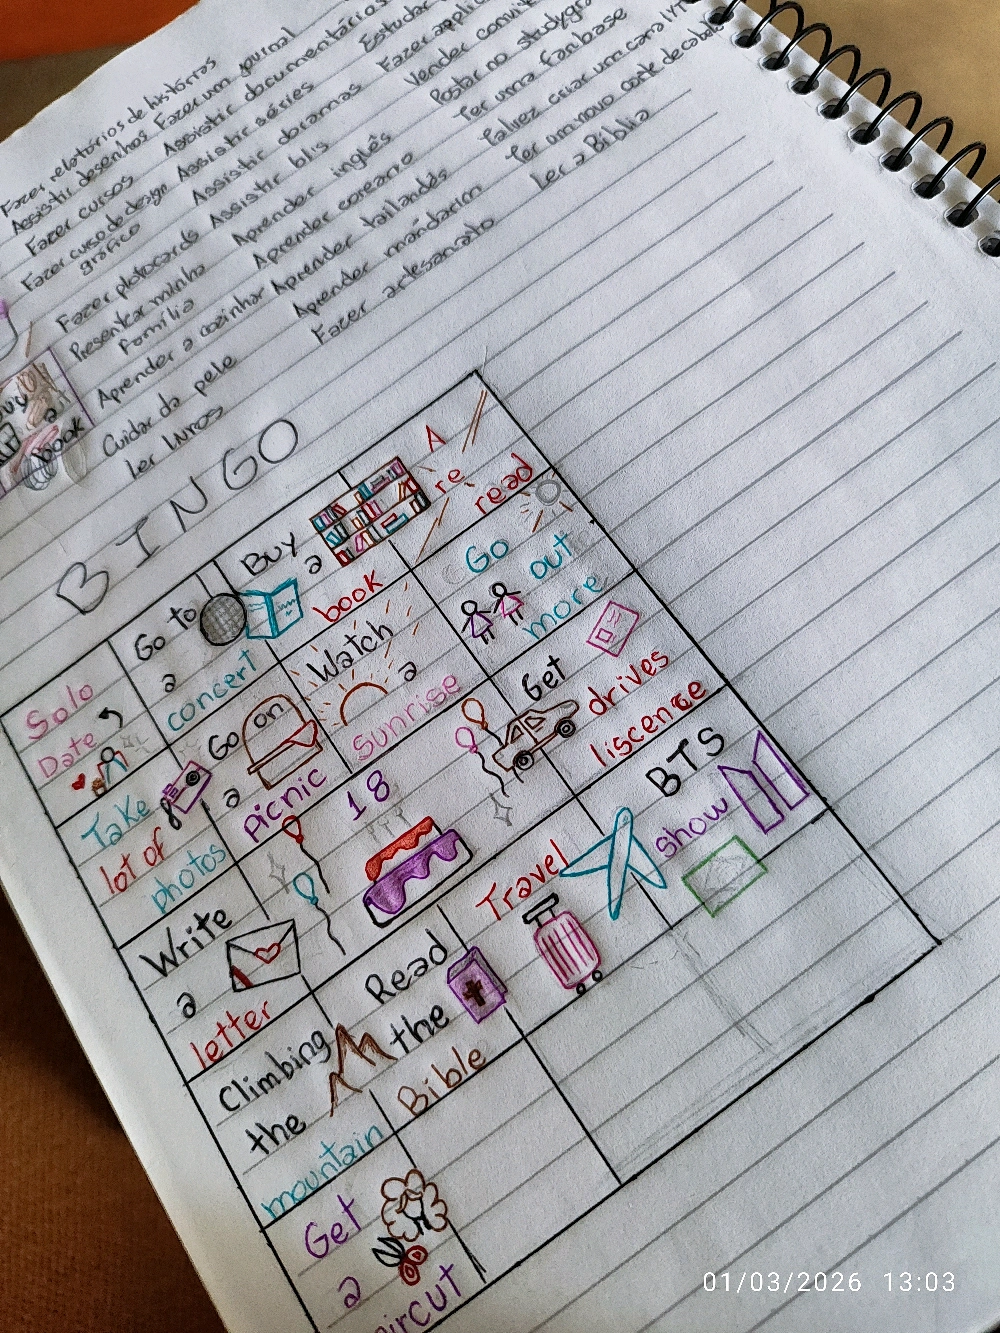 Fazer relatórios de histórias
Assistir desenhos Fazer uma journal
Fazer cursos Assistir documentários Estudar
Fazer curso de design gráfico Assistir séries
Assistir doramas
Fazer photocards Assistir blis
Presentear minha família
Aprender inglês
Aprender coreano
Aprender a cozinhar Aprender tailandês
Aprender mandarim
Cuidar da pele Fazer artesanato
Ler livros
Vender
Postar no studygram
Ter uma fanbase
Talvez criar um canal
Ter um novo corte de cabelo
Ler a Bíblia
Buy
a
book
BINGO
Solo
Date
Go to
a
concert
Buy
a
book
A
re
read
Take
lot of
photos
Go on
a
picnic
Watch
a
sunrise
Go
out
more
Write
a
letter
18
Get
drives
liscence
Climbing
the
mountain
Read
the
Bible
Travel
BTS
show
Get
a
aircut
01/03/2026 13:03